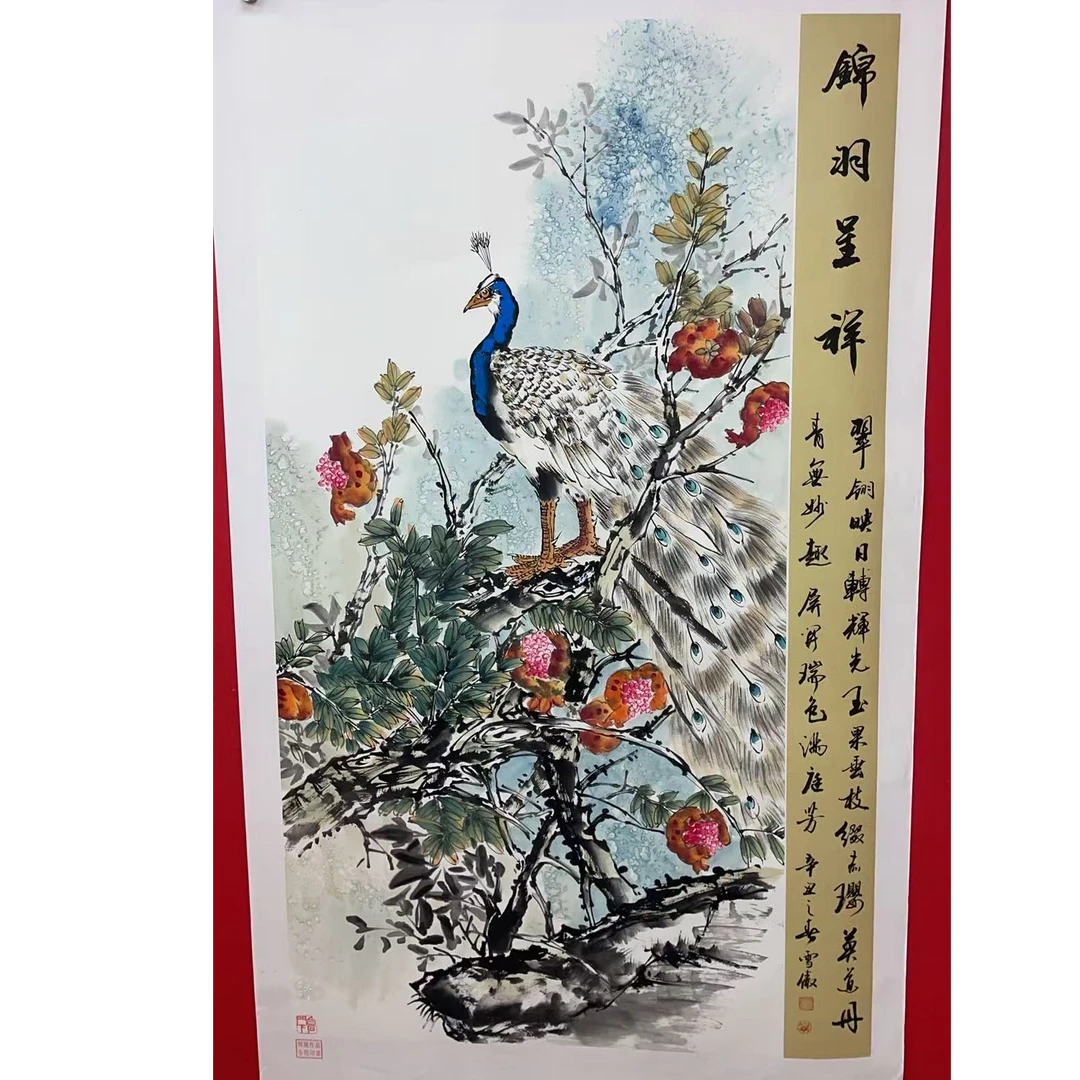 錦羽呈祥
翠翎映日轉輝光玉果垂枝綴赤瓔莫道丹
青無妙趣屏開瑞色滿庭芳辛丑之春雪傲